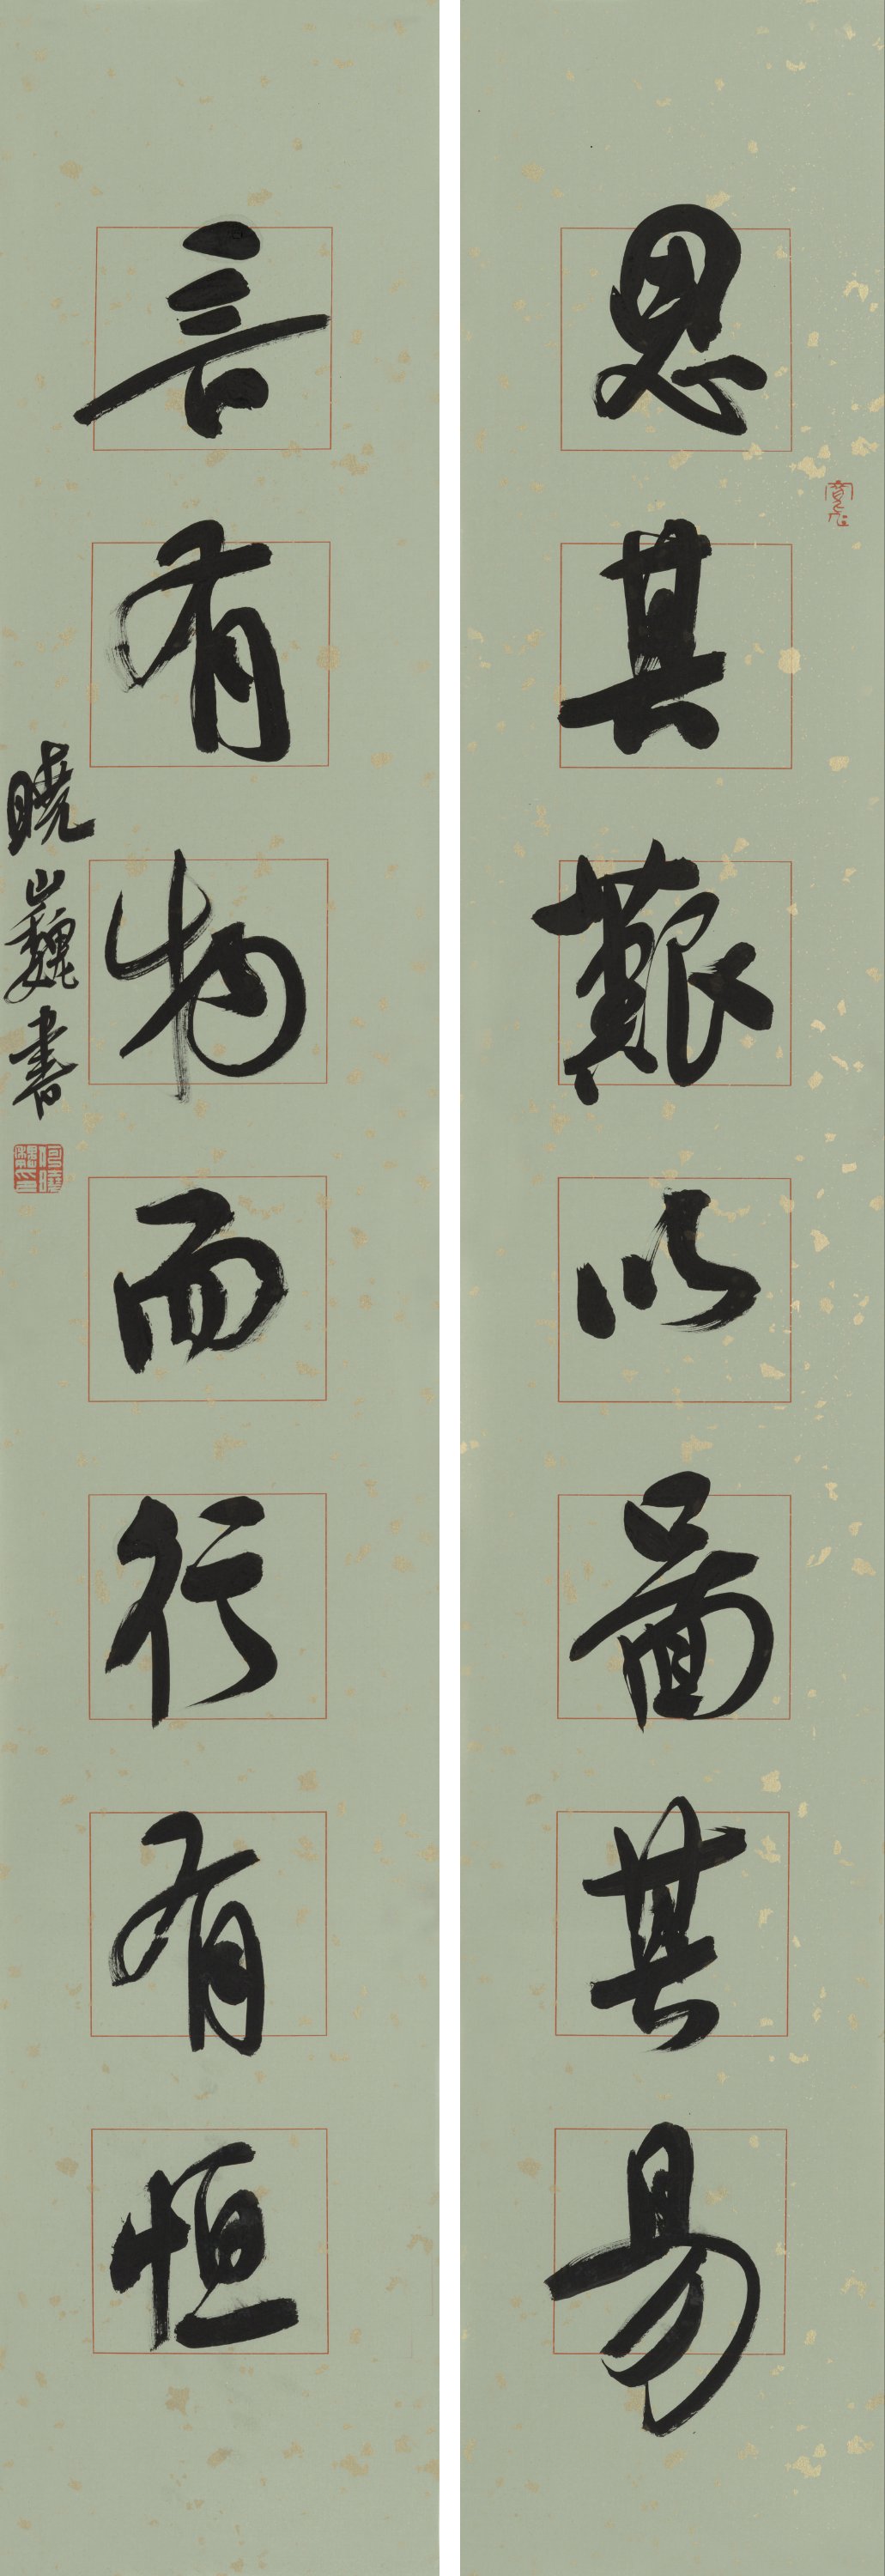 思其艱以圖其易
言有物而行有恒
曉巍書